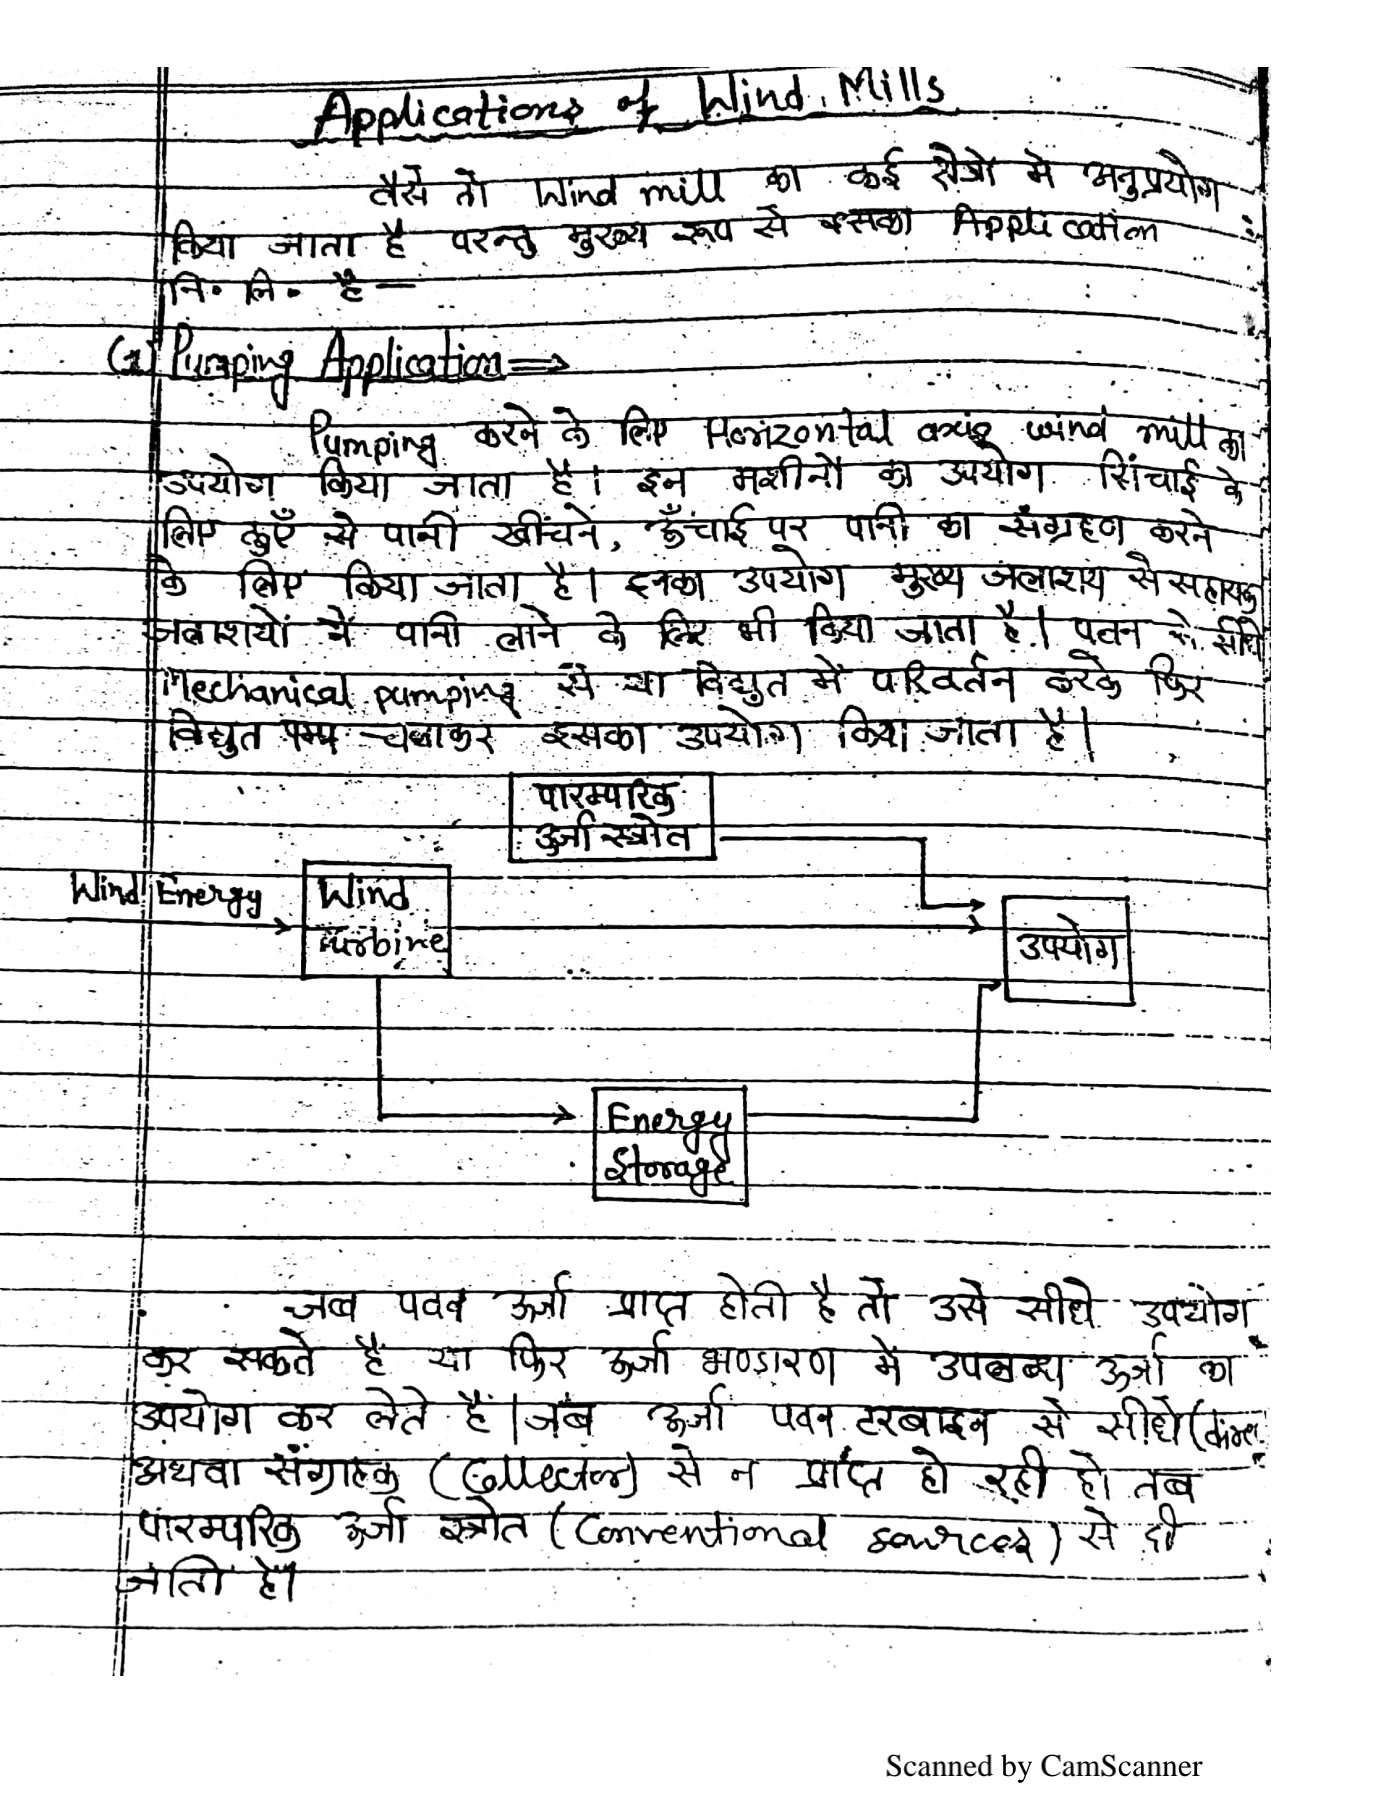 Applications of Wind Mills
वैसे तो Wind mill का कई क्षेत्रों में अनुप्रयोग
किया जाता है परन्तु मुख्य रूप से इसका Application
नि. लि. है —
Pumping Application ⇒
Pumping करने के लिए Horizontal axis wind mill का
उपयोग किया जाता है। इन मशीनों का उपयोग सिंचाई के
लिए कुएँ से पानी खींचने, ऊँचाई पर पानी का संग्रहण करने
के लिए किया जाता है। इनका उपयोग मुख्य जलाशय से सहायक
जलाशयों में पानी लाने के लिए भी किया जाता है। पवन को सीधे
Mechanical pumping से या विद्युत में परिवर्तन करके फिर
विद्युत पम्प चलाकर इसका उपयोग किया जाता है।
पारम्परिक
ऊर्जा स्त्रोत
Wind Energy
Wind
turbine
उपयोग
Energy
Storage
जब पवन ऊर्जा प्राप्त होती है तो उसे सीधे उपयोग
कर सकते हैं या फिर ऊर्जा भण्डारण में उपलब्ध ऊर्जा का
उपयोग कर लेते हैं। जब ऊर्जा पवन टरबाइन से सीधे
अथवा संग्राहक (Collector) से न प्राप्त हो रही हो तब
पारम्परिक ऊर्जा स्त्रोत (Conventional sources) से दी
जाती है।
Scanned by CamScanner